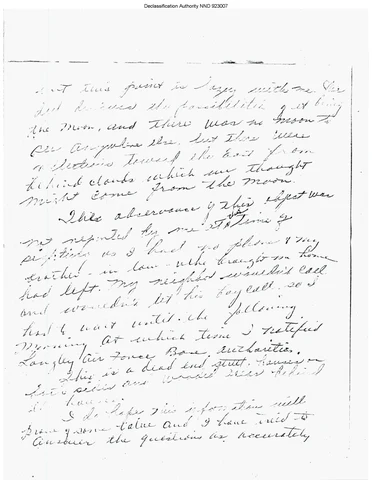 Declassification Authority NND 923007
but this point is hazy with me. We
did discuss the possibilities of it being
the moon, and there was no moon to
see anywhere else, but there were
reflections toward the east from
behind clouds which we thought
might come from the moon.
This observance of this object was
not reported by me at the time of
sighting as I had no phone & my
brother-in-law who brought me home
had left. My neighbor wouldn't call
and wouldn't let his boy call so I
had to wait until the following
morning at which time I notified
Langley Air Force Base authorities.
This is a dead end street, houses on
both sides and woods behind
house.
I do hope this information will
prove of some value and I have tried to
answer the questions as accurately